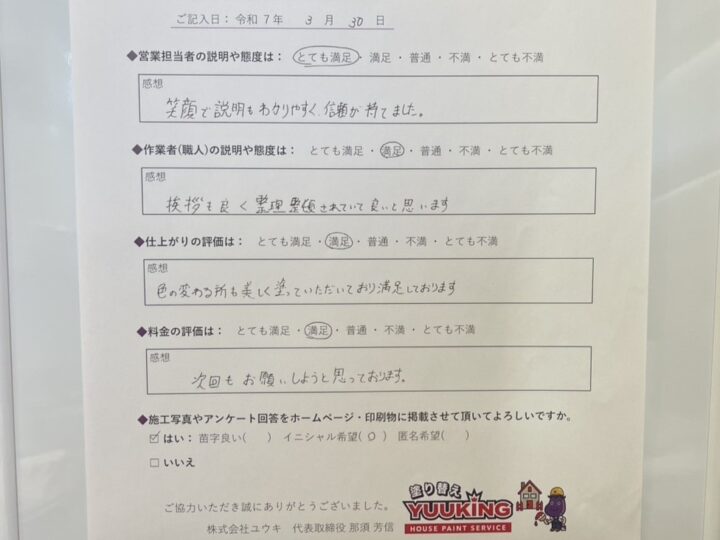 ご記入日：令和7年 3月 30日
◆営業担当者の説明や態度は： とても満足・満足・普通・不満・とても不満
感想
笑顔で説明もわかりやすく、信頼が持てました。
◆作業者(職人)の説明や態度は： とても満足・満足・普通・不満・とても不満
感想
挨拶も良く整理整頓されていて良いと思います
◆仕上がりの評価は： とても満足・満足・普通・不満・とても不満
感想
色の変わる所も美しく塗っていただいており満足しております
◆料金の評価は： とても満足・満足・普通・不満・とても不満
感想
次回もお願いしようと思っております。
◆施工写真やアンケート回答をホームページ・印刷物に掲載させて頂いてよろしいですか。
☑はい：苗字良い( ) イニシャル希望(○) 匿名希望( )
□いいえ
ご協力いただき誠にありがとうございました。
株式会社ユウキ 代表取締役 那須 芳信
塗り替え
YUUKING
HOUSE PAINT SERVICE